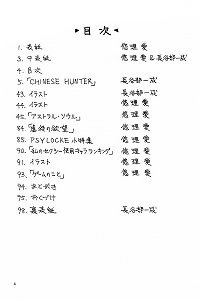 ▸目次◂
1. 表紙 悠理愛
3. 中表紙 悠理愛&長谷部一成
4. 目次
5. 「CHINESE HUNTER」 長谷部一成
43. イラスト 長谷部一成
44. イラスト 悠理愛
45. 「アストラル・ソウル」 悠理愛
84. 「 欲望」 悠理愛
85. PSYLOCKE小特集 悠理愛
90. 「私のセクシー使用キャラランキング」 悠理愛
91. イラスト 悠理愛
93. 「ゲームのこと」 悠理愛
94. あとがき
95. おくづけ
98. 裏表紙 長谷部一成
4